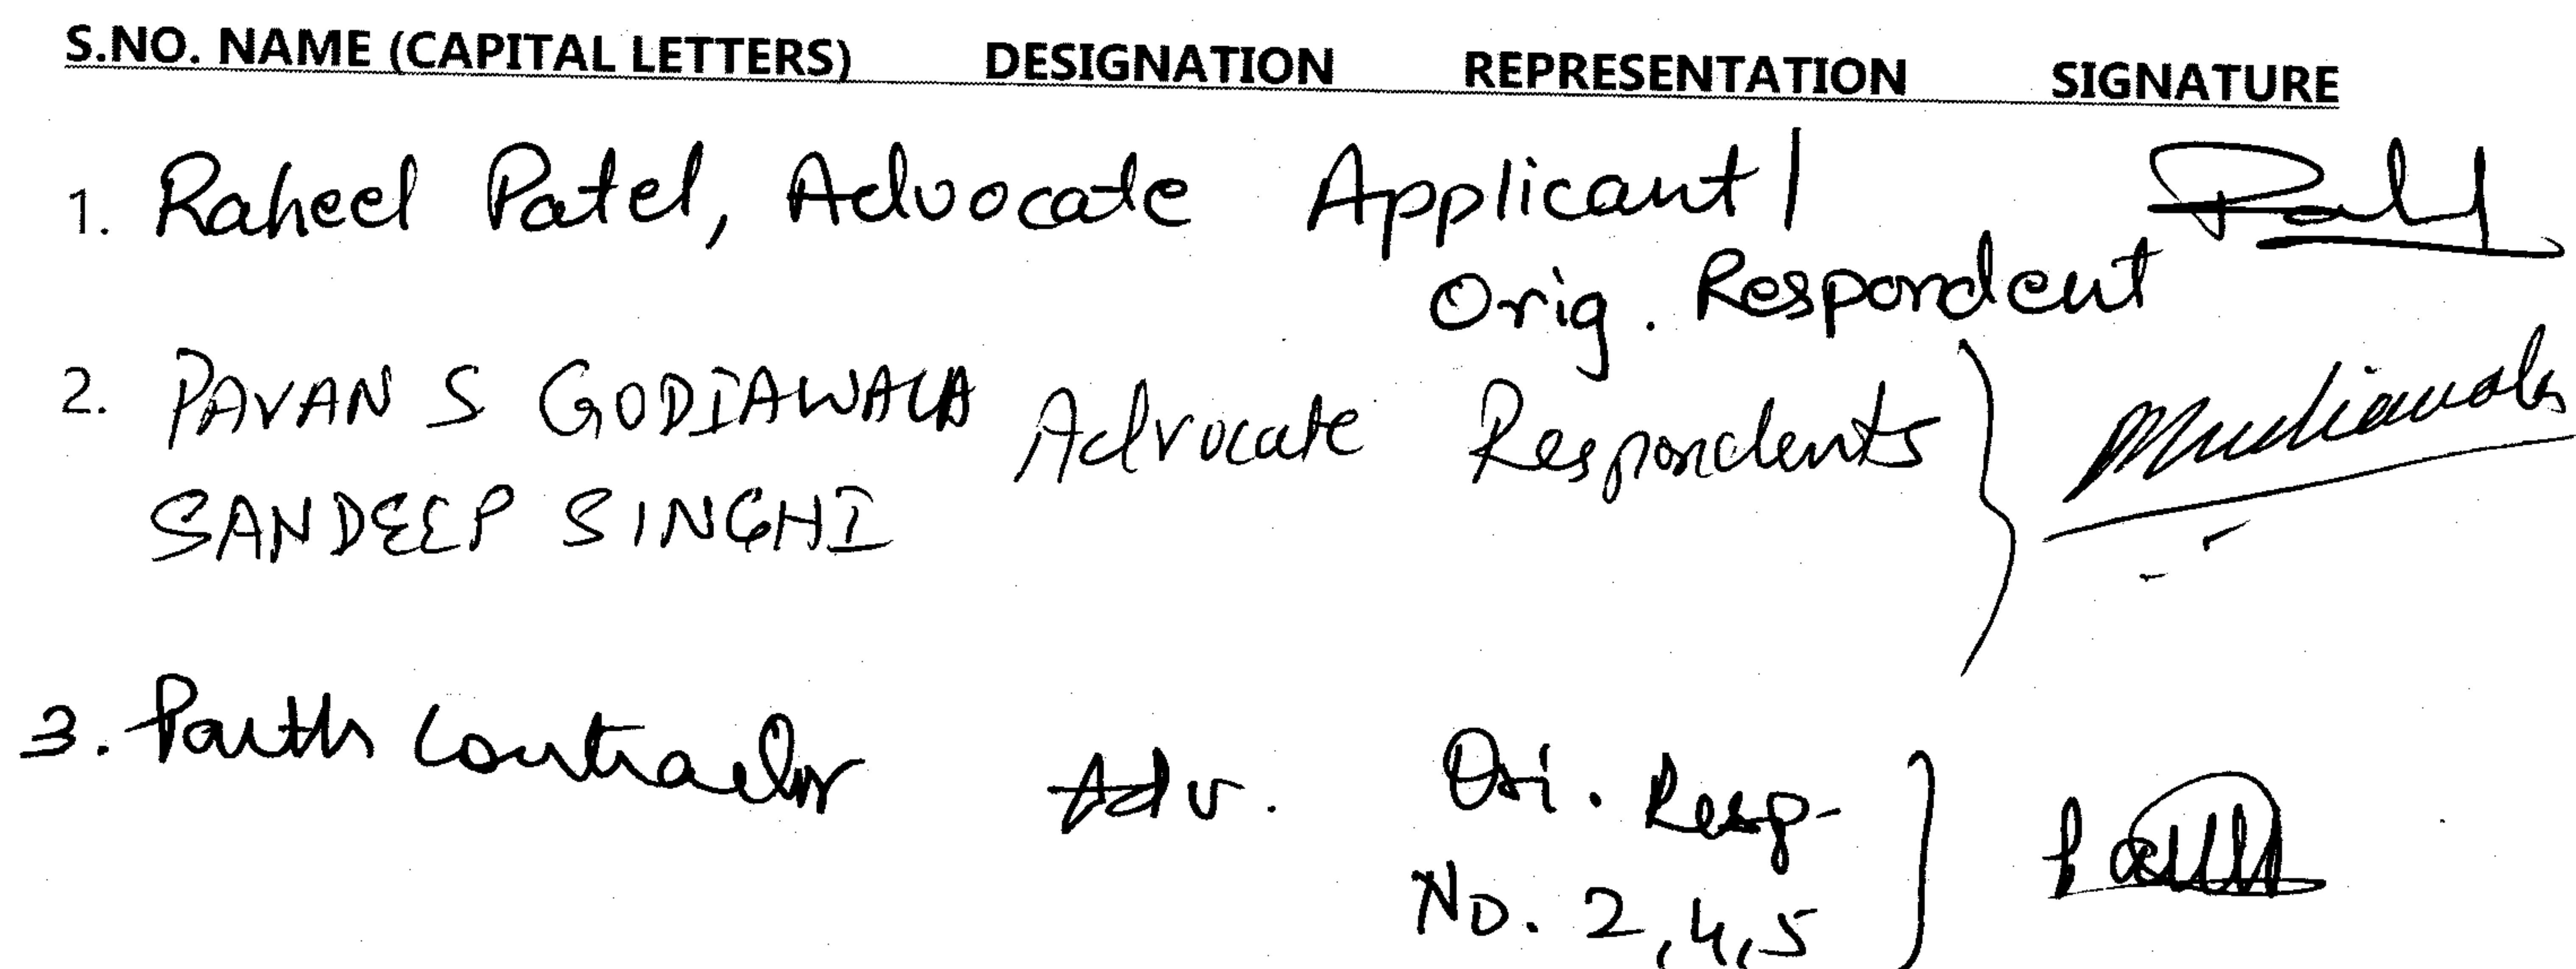 S.NO. NAME (CAPITAL LETTERS) DESIGNATION REPRESENTATION SIGNATURE
1. Raheel Patel, Advocate Applicant/
Orig. Respondent
2. PAVAN S GODIAWALA Advocate Respondents
SANDEEP SINGHI
3. Parth Contractor Adv. Ori. Resp.
No. 2,4,5